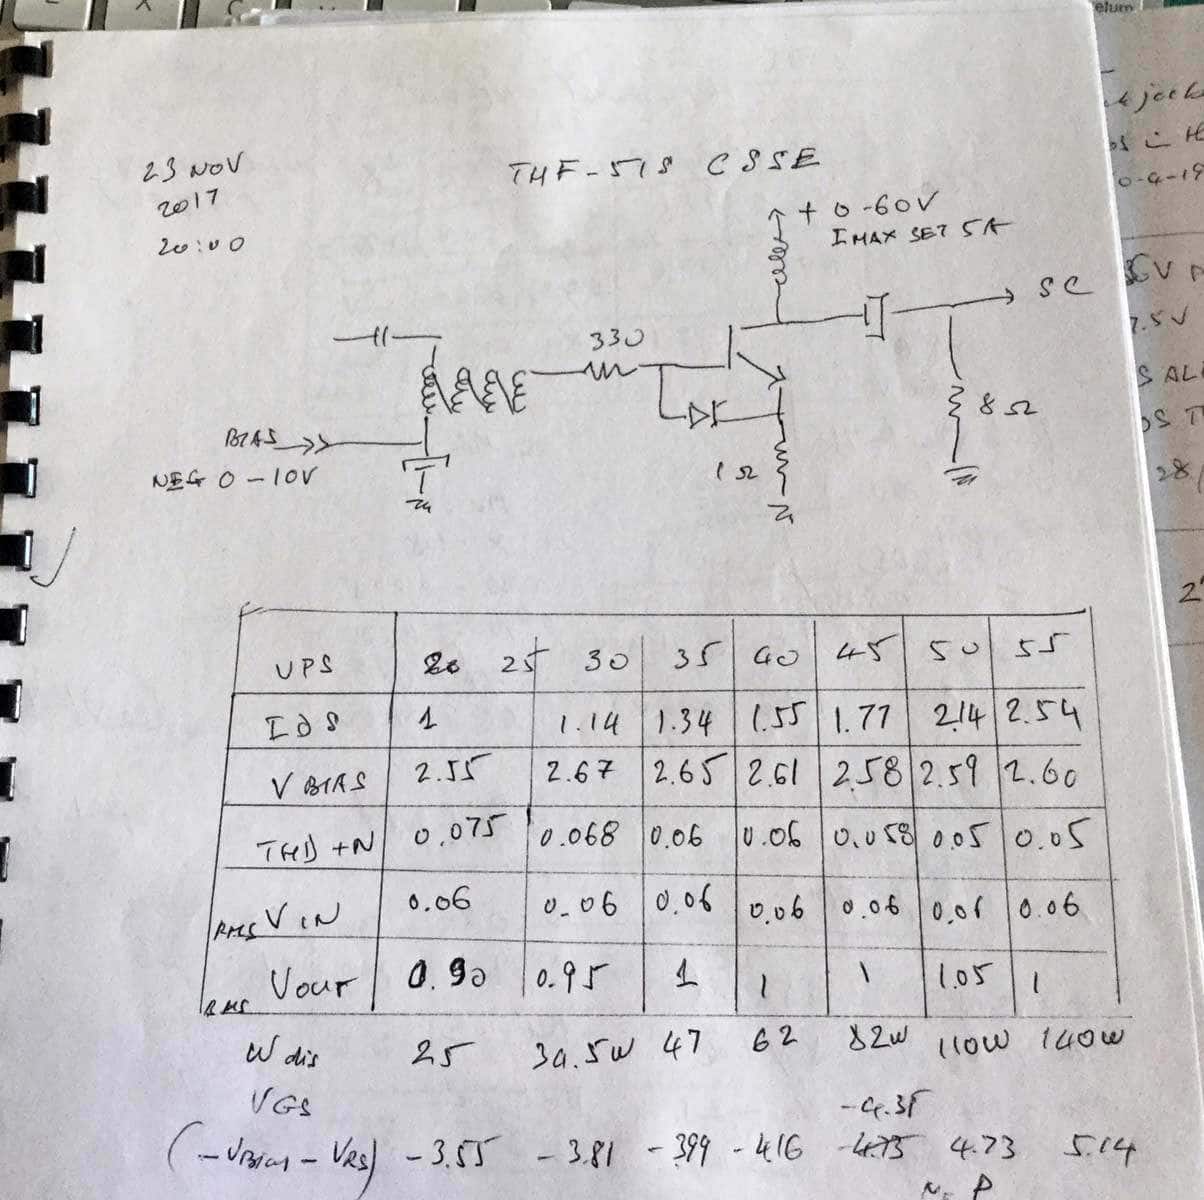 elum
23 NOV
2017
20:00
THF-51S CSSE
+ 0-60V
IMAX SET 5A
SC
330
8Ω
1Ω
BIAS
NEG 0-10V
VPS 25 30 35 40 45 50 55
IDS 1 1.14 1.34 1.55 1.77 2.14 2.54
VBIAS 2.55 2.67 2.65 2.61 2.58 2.59 2.60
THD+N 0.075 0.068 0.06 0.06 0.058 0.05 0.05
RMS VIN 0.06 0.06 0.06 0.06 0.06 0.06 0.06
RMS VOUT 0.90 0.95 1 1 1 1.05 1
W dis 25 34.5W 47 62 82W 110W 140W
VGS -4.35
(-VBias - VRS) -3.55 -3.81 -3.99 -4.16 -4.75 4.73 5.14
P
jack
0-4-19
V
7.5V
S ALL
28
2